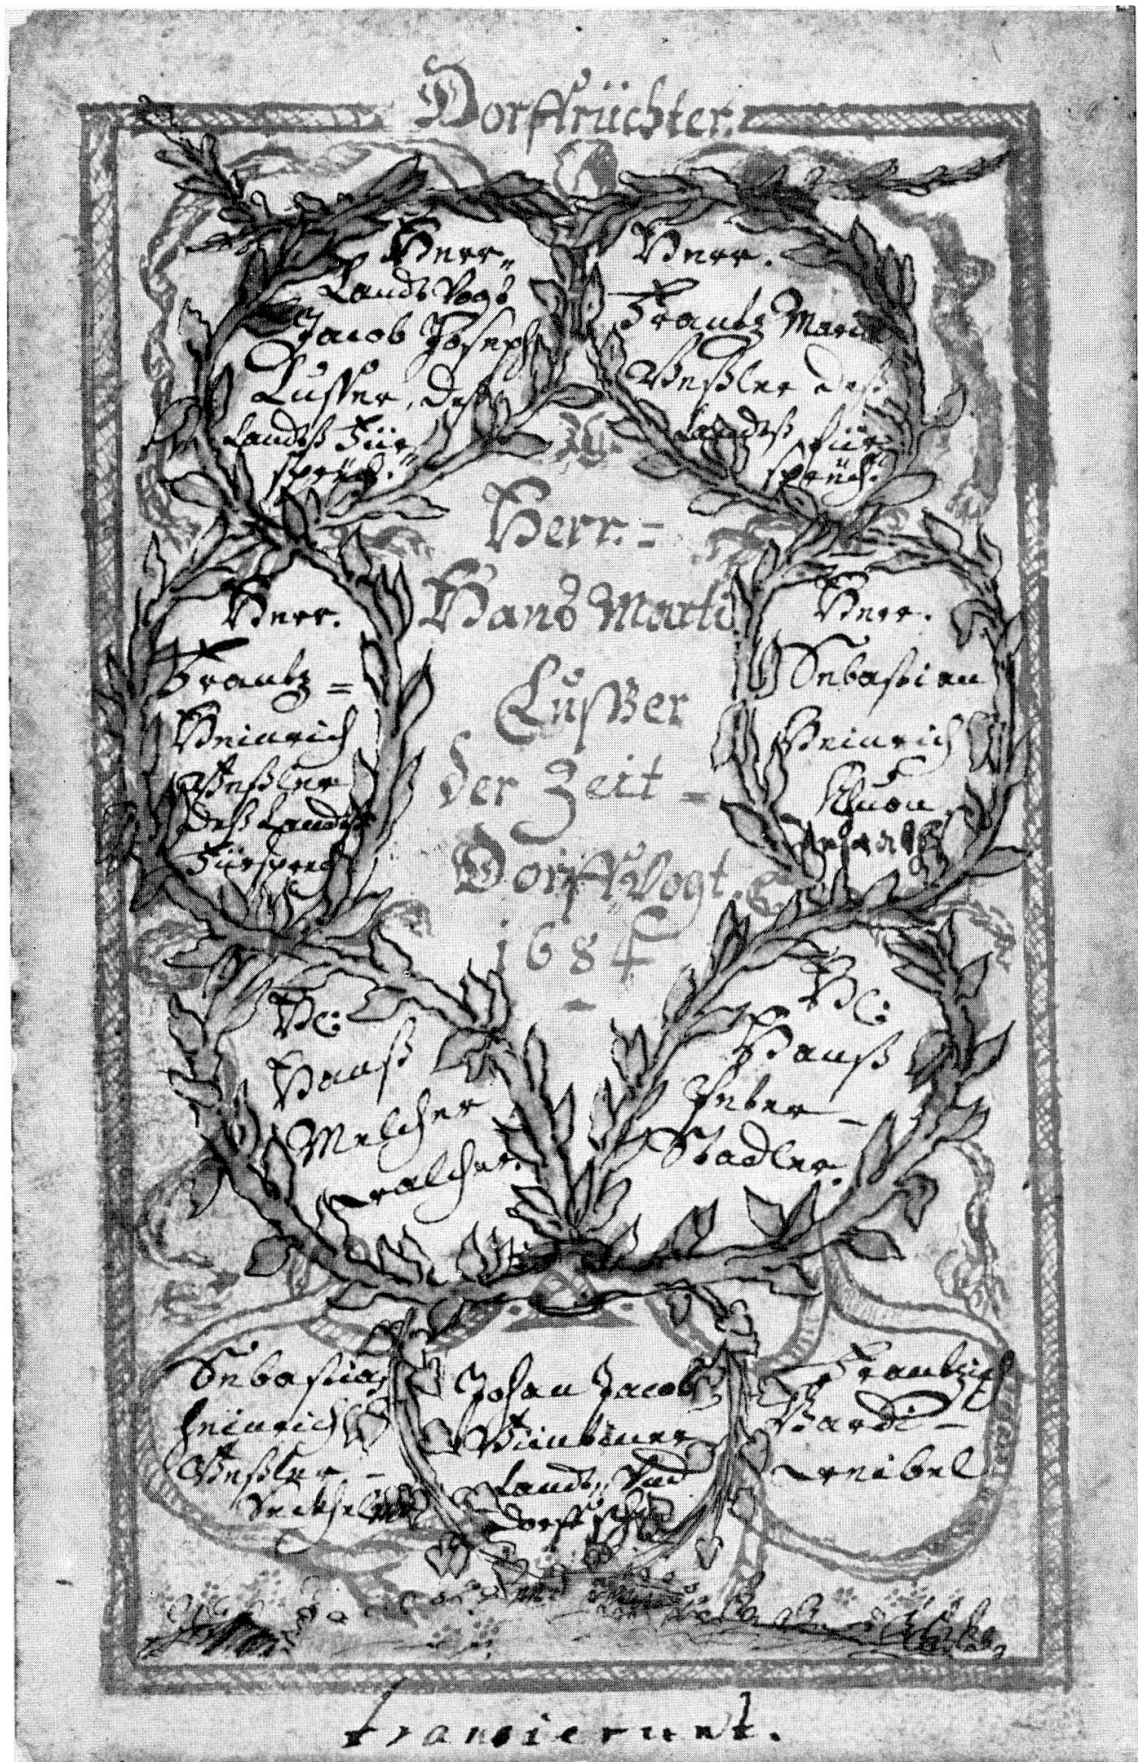 Dorffrüchter.
Herr
Landts Vogt
Jacob Joseph
Lusser, deß
Landtß Für
sprech.
Herr.
Frantz Marti
Beßler deß
Landtß für
sprech.
Herr.-
Hans Marti
Lußer
der Zeit -
Dorff Vogt.
1684
Herr.
Frantz =
Heinrich
Beßler
deß Landtß
Fürsprech
Herr.
Sebastian
Heinrich
Khuon
Hr:
Hanß
Melcher
Hr:
Hanß
Stadler.
Sebastian
Heinrich
Beßler -
Johan Jacob
Landts Und
Dorff
Frantz
transierunt.